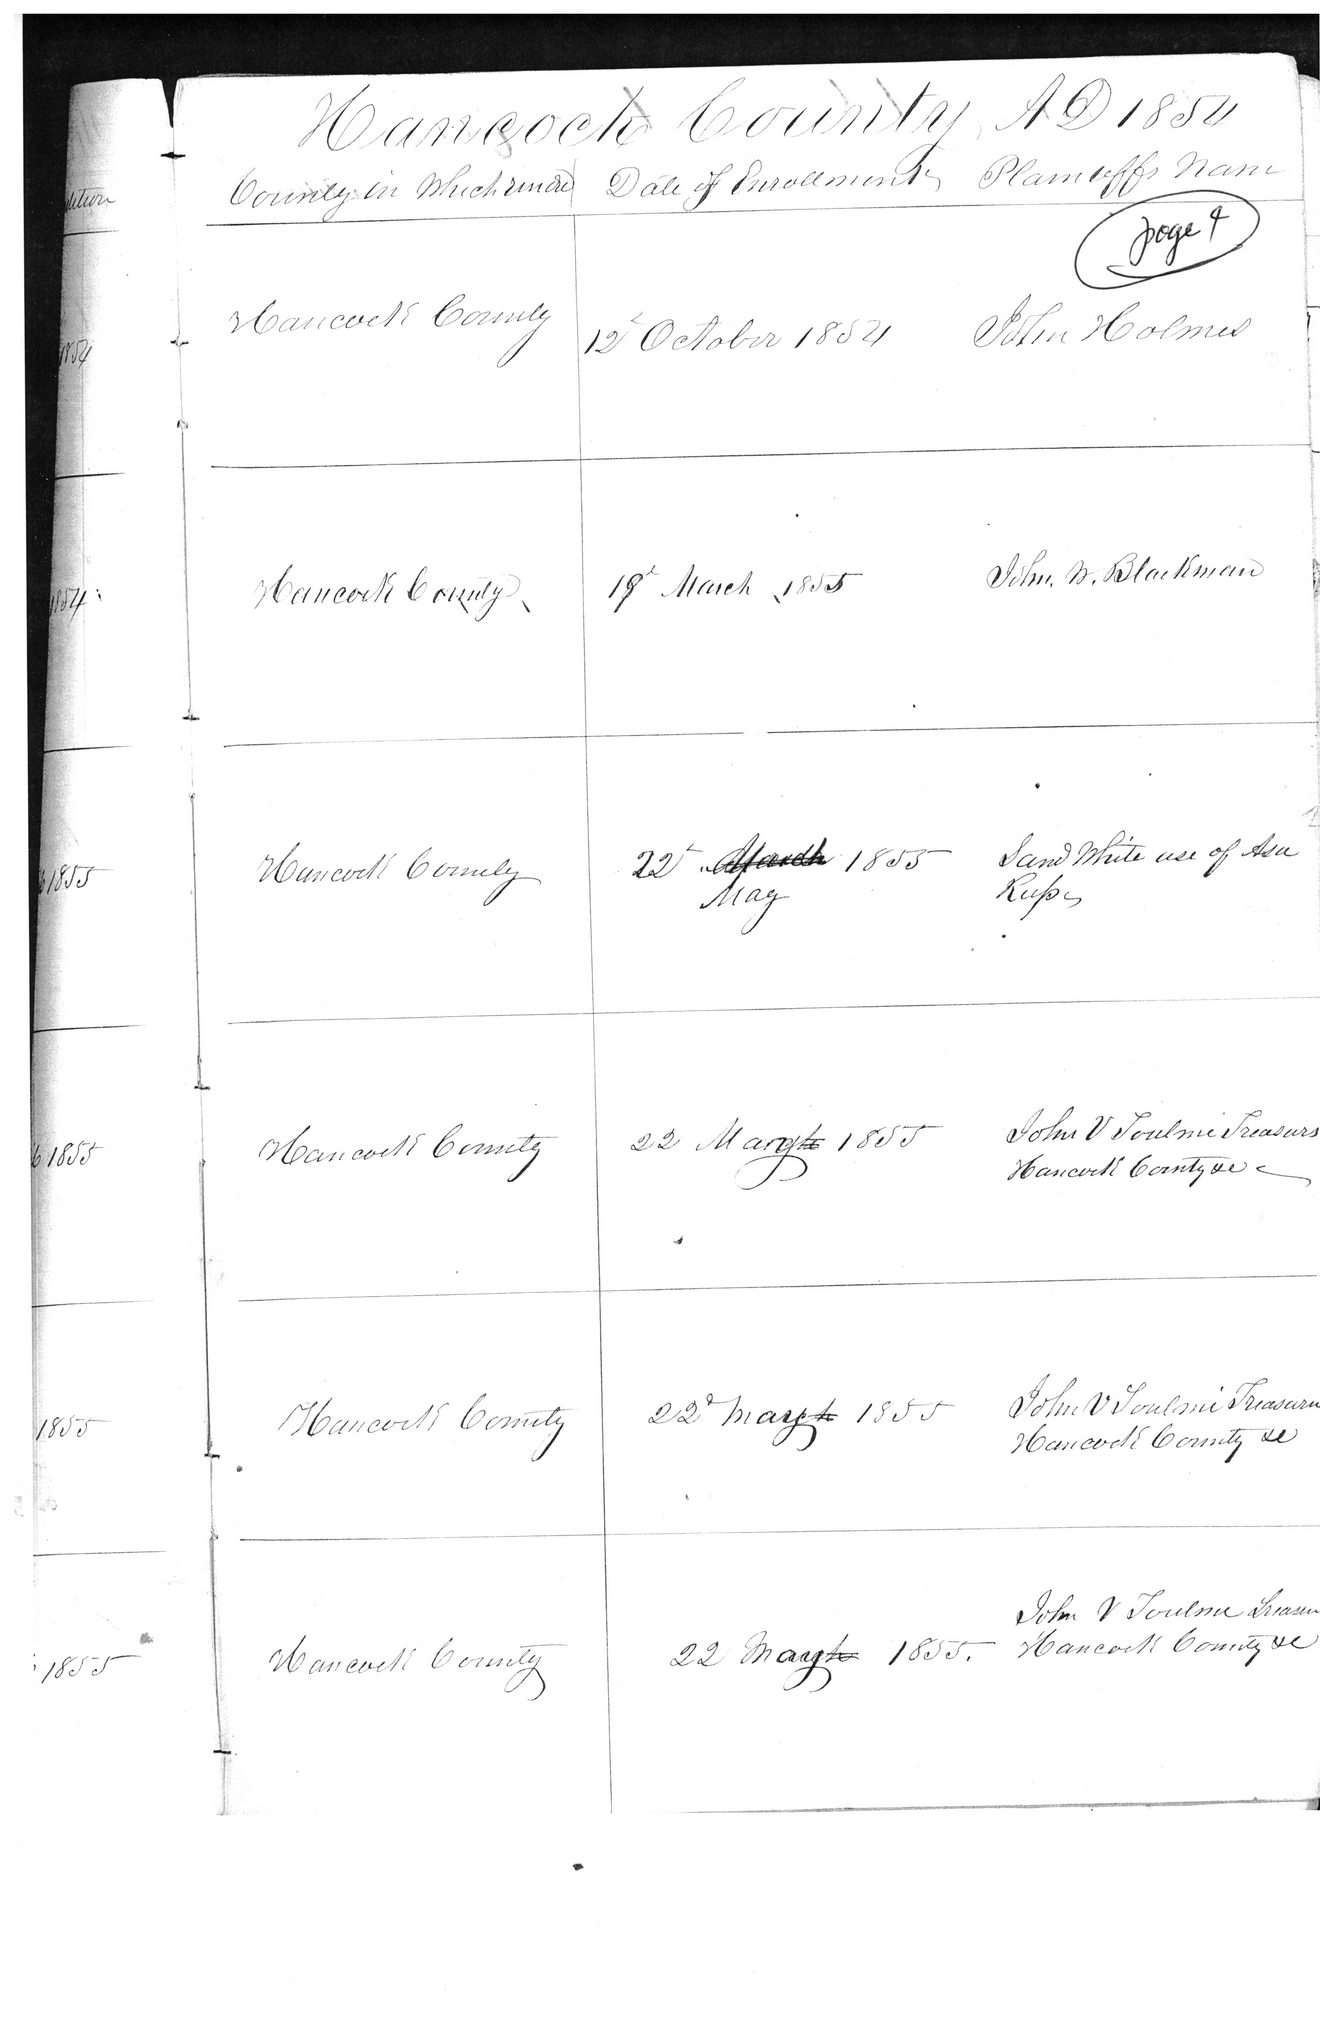 Hancock County, A D 1854
County in Which rend Date of Enrollment Plaintiffs Name
page 4
Hancock County 12t October 1854 John Holmes
1854
Hancock County 19t March 1855 John. W. Blackman
1854
Hancock County 22t March 1855 Sand White use of Asa
1855
May Russ
Hancock County 22 May 1855 John V Toulme Treasurs
1855
Hancock County &c
Hancock County 22d May 1855 John V Toulme Treasure
1855
Hancock County &c
John V Toulme Treasu
Hancock County 22 May 1855. Hancock County &c
1855